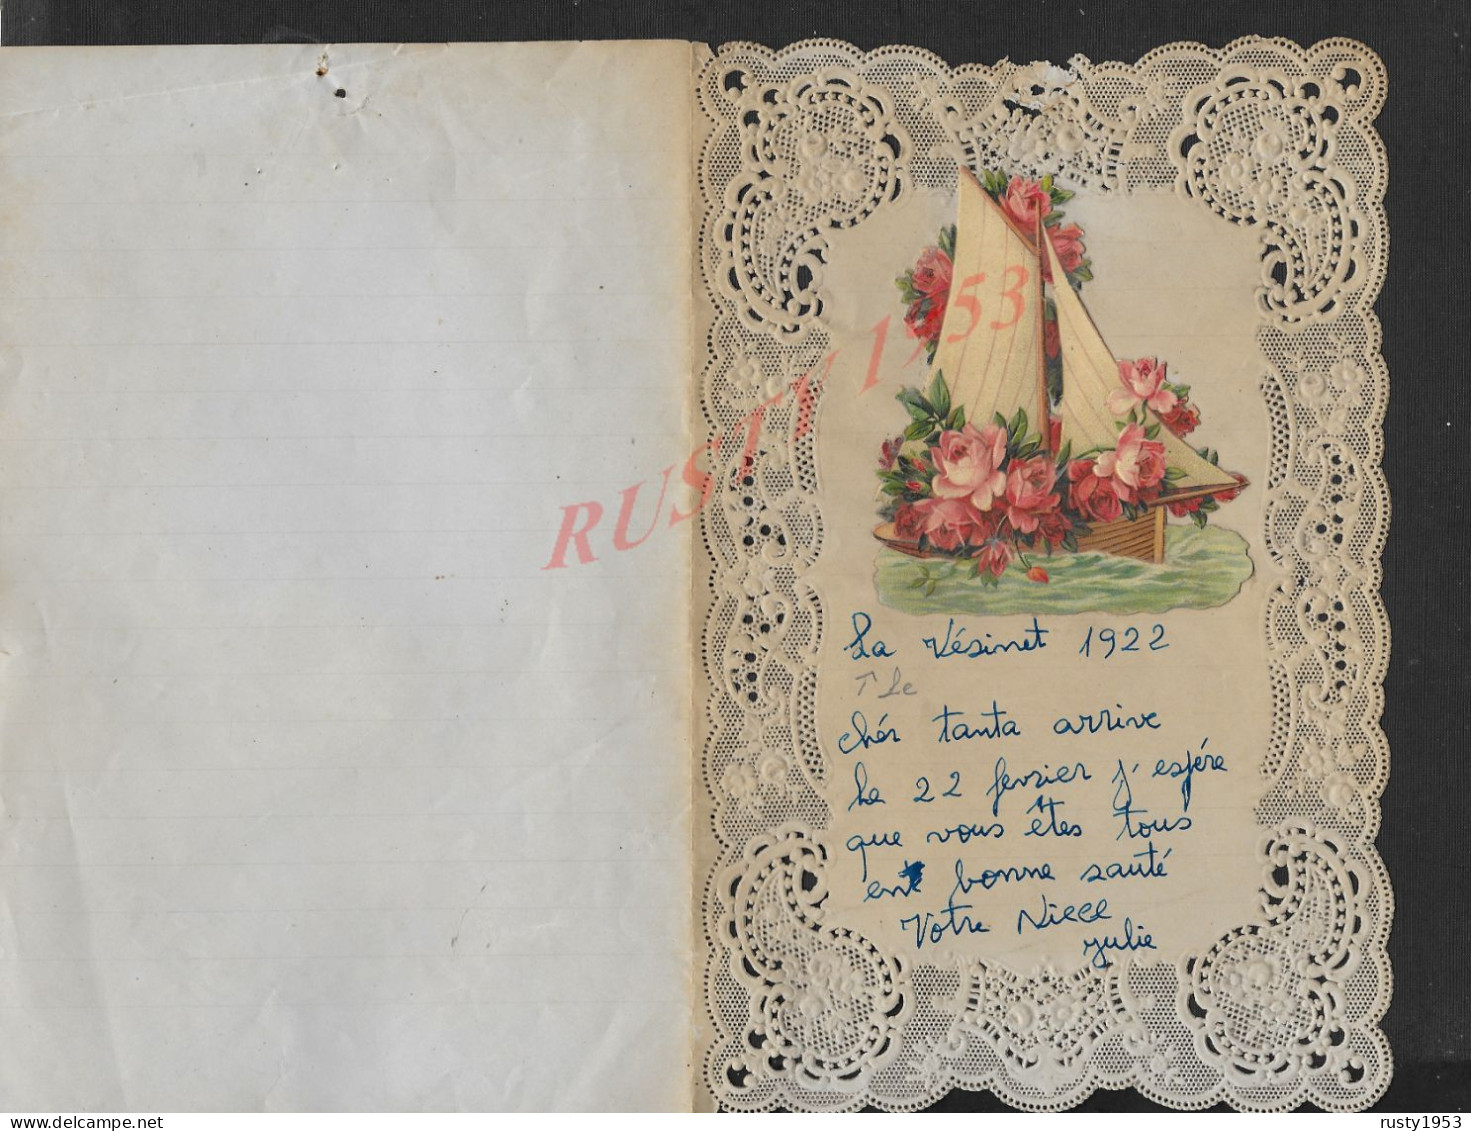 RUSTY 1953
La Vésinet 1922
Le
chér tanta arrive
Le 22 fevrier j'espére
que vous êtes tous
ent bonne santé
Votre Niece
julie
delcampe.net
rusty1953